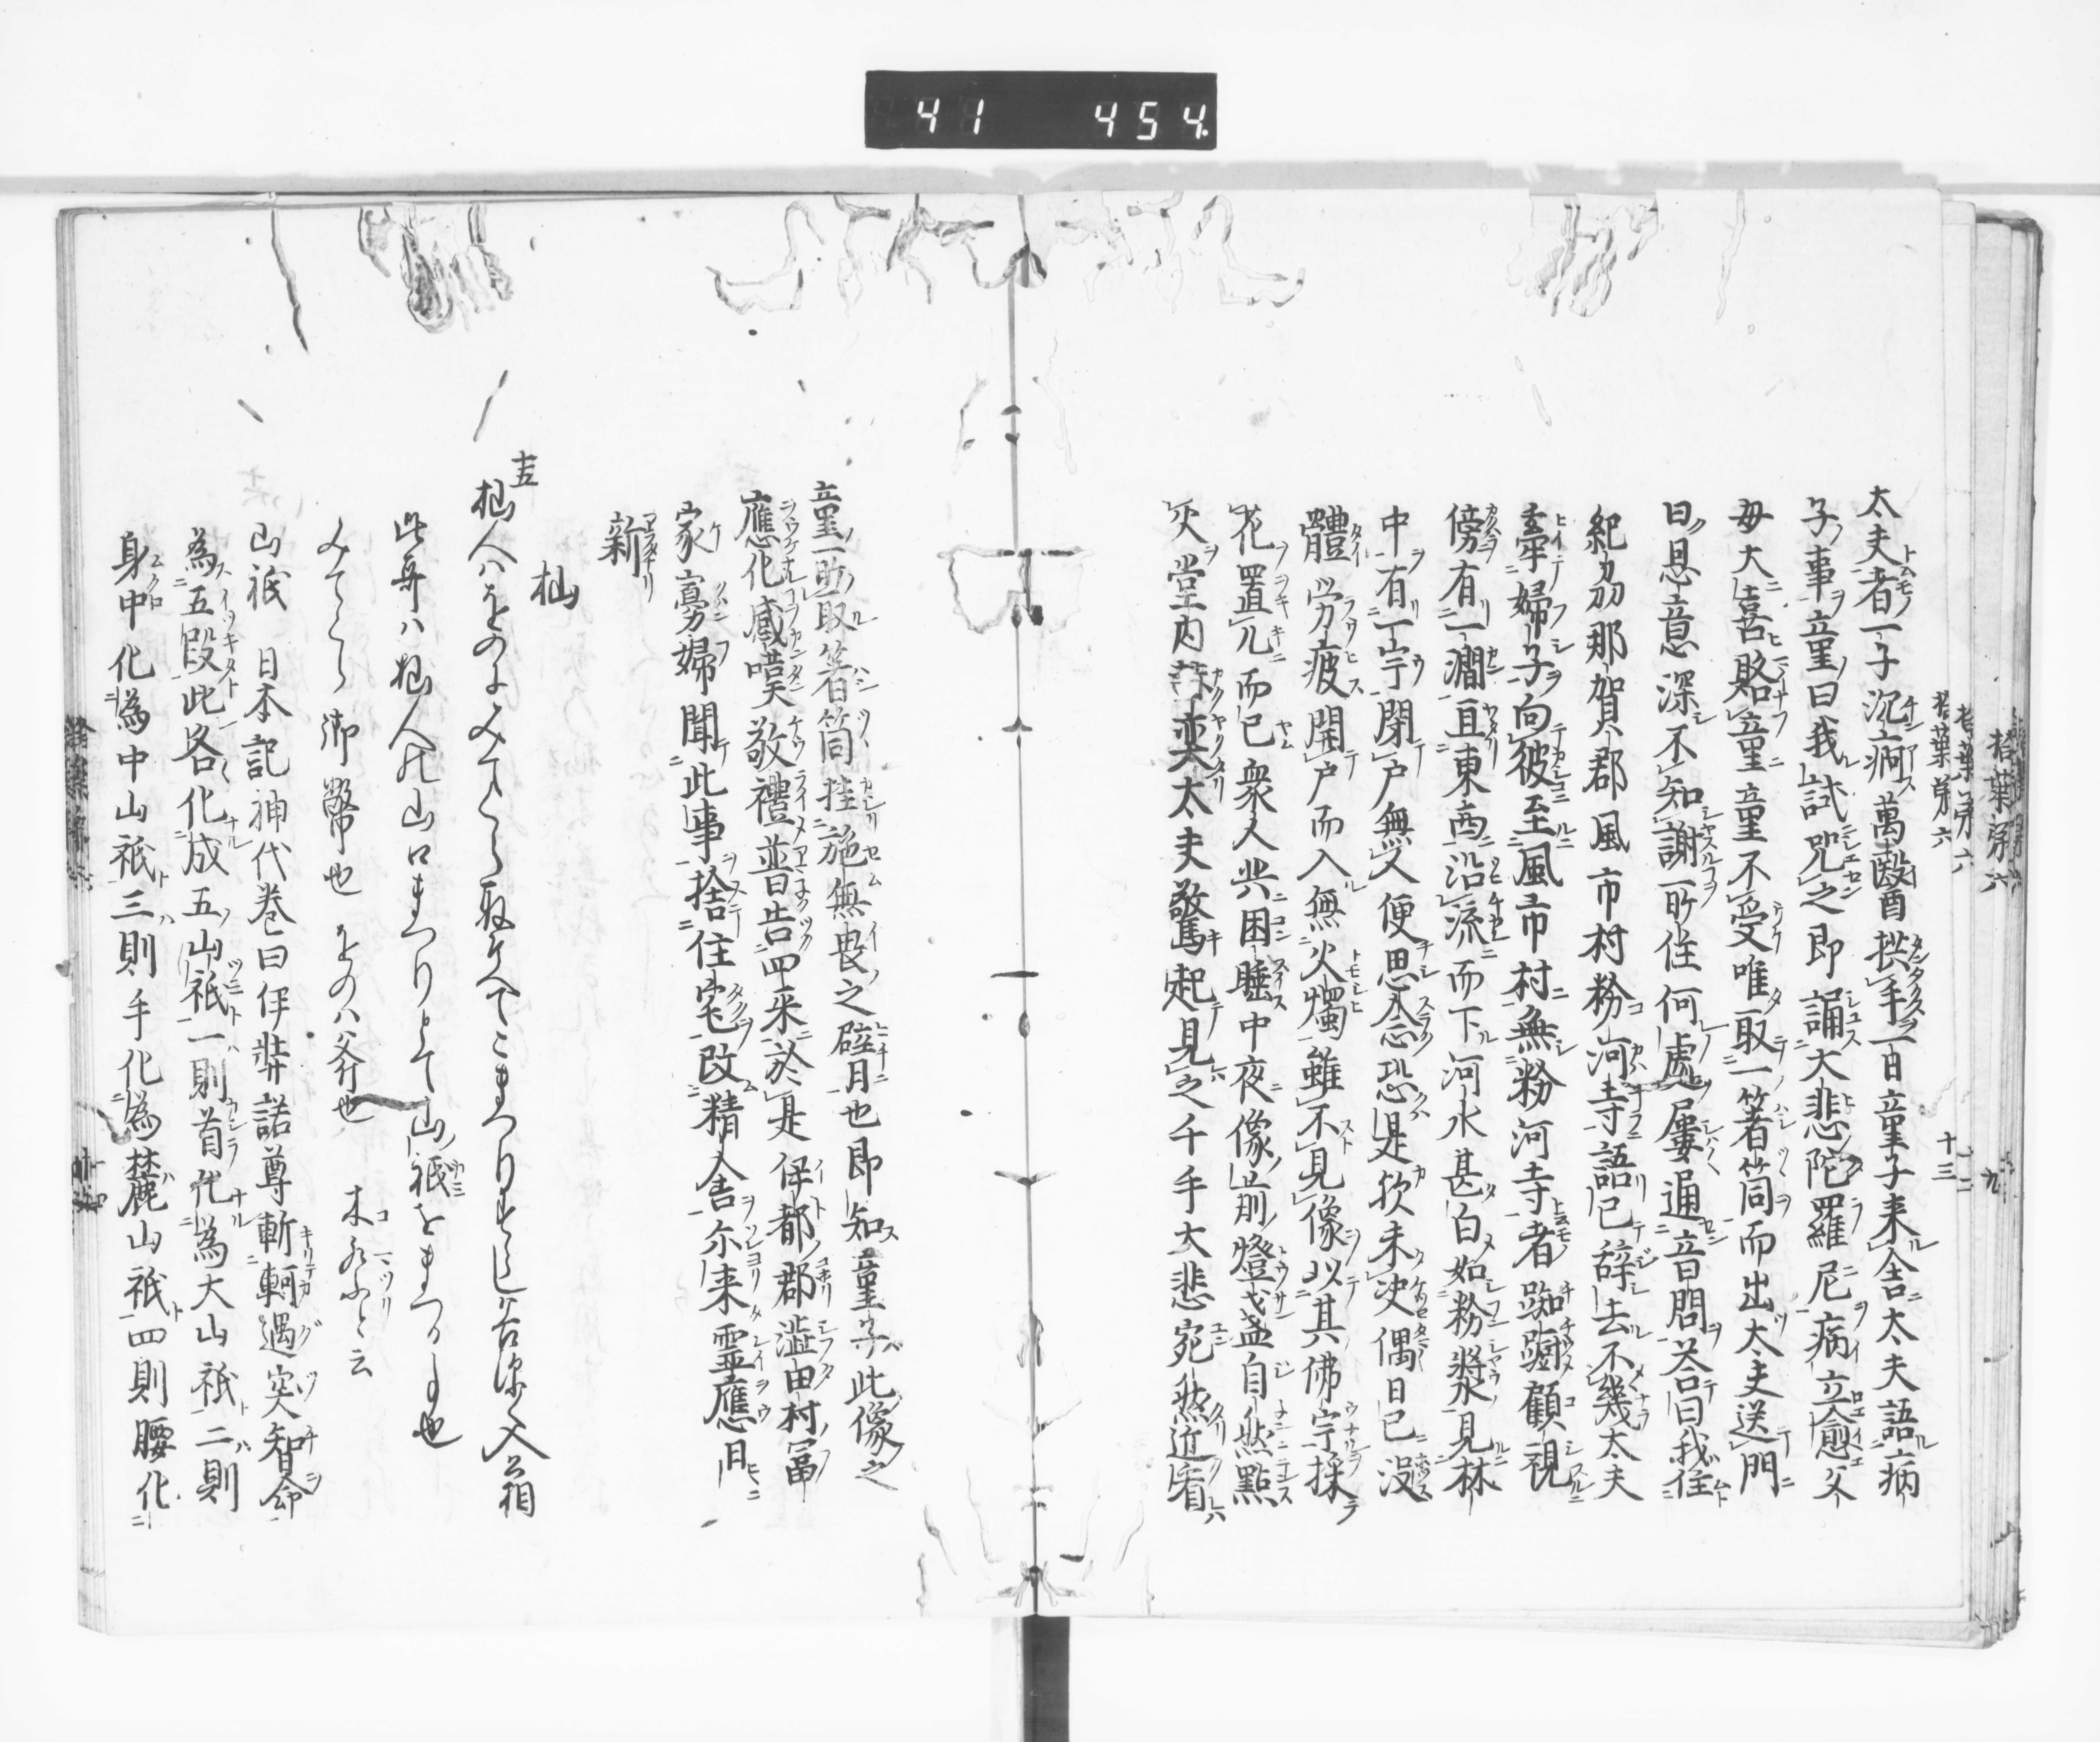 41 454.
拾葉第六
拾葉第六
拾葉第六
十三
九
太夫者一子沉痾萬毉拱手一日童子来舎太夫語病
子事童曰我試咒之即誦大悲陀羅尼病立愈父
母大喜賂童童不受唯取一箸筒而出太夫送門
曰恩意深不知謝所住何處屢通音問答曰我住
紀刕那賀郡風市村粉河寺語已辞去不幾太夫
牽婦子向彼至風市村無粉河寺者踟蹰顧視
傍有一澗亘東西沿流而下河水甚白如粉漿見林
中有一宇閉戸無人便思念恐是欤未决偶日已没
體労疲開戸而入無火燭雖不見像以其佛宇採
花置几而已衆人共困睡中夜像前燈盞自然點
火堂内赫奕太夫驚起見之千手大悲宛然近看
童所取箸筒挂施無畏之臂月也即知童子此像之
應化感嘆敬禮普告四来於是伊都郡澁田村冨
家寡婦聞此事捨住宅改精舎尓来霊應日
新
杣
十五
杣人はをのにみてくら取そへて
此哥ハ杣人の山口まつりとて山祇をまつる事也
みてくら 御幣也 をのハ斧也
山祇 日本記神代巻曰伊弉諾尊斬軻遇突智命
為五段此各化成五山祇一則首化為大山祇二則
身中化為中山祇三則手化為麓山祇四則腰化